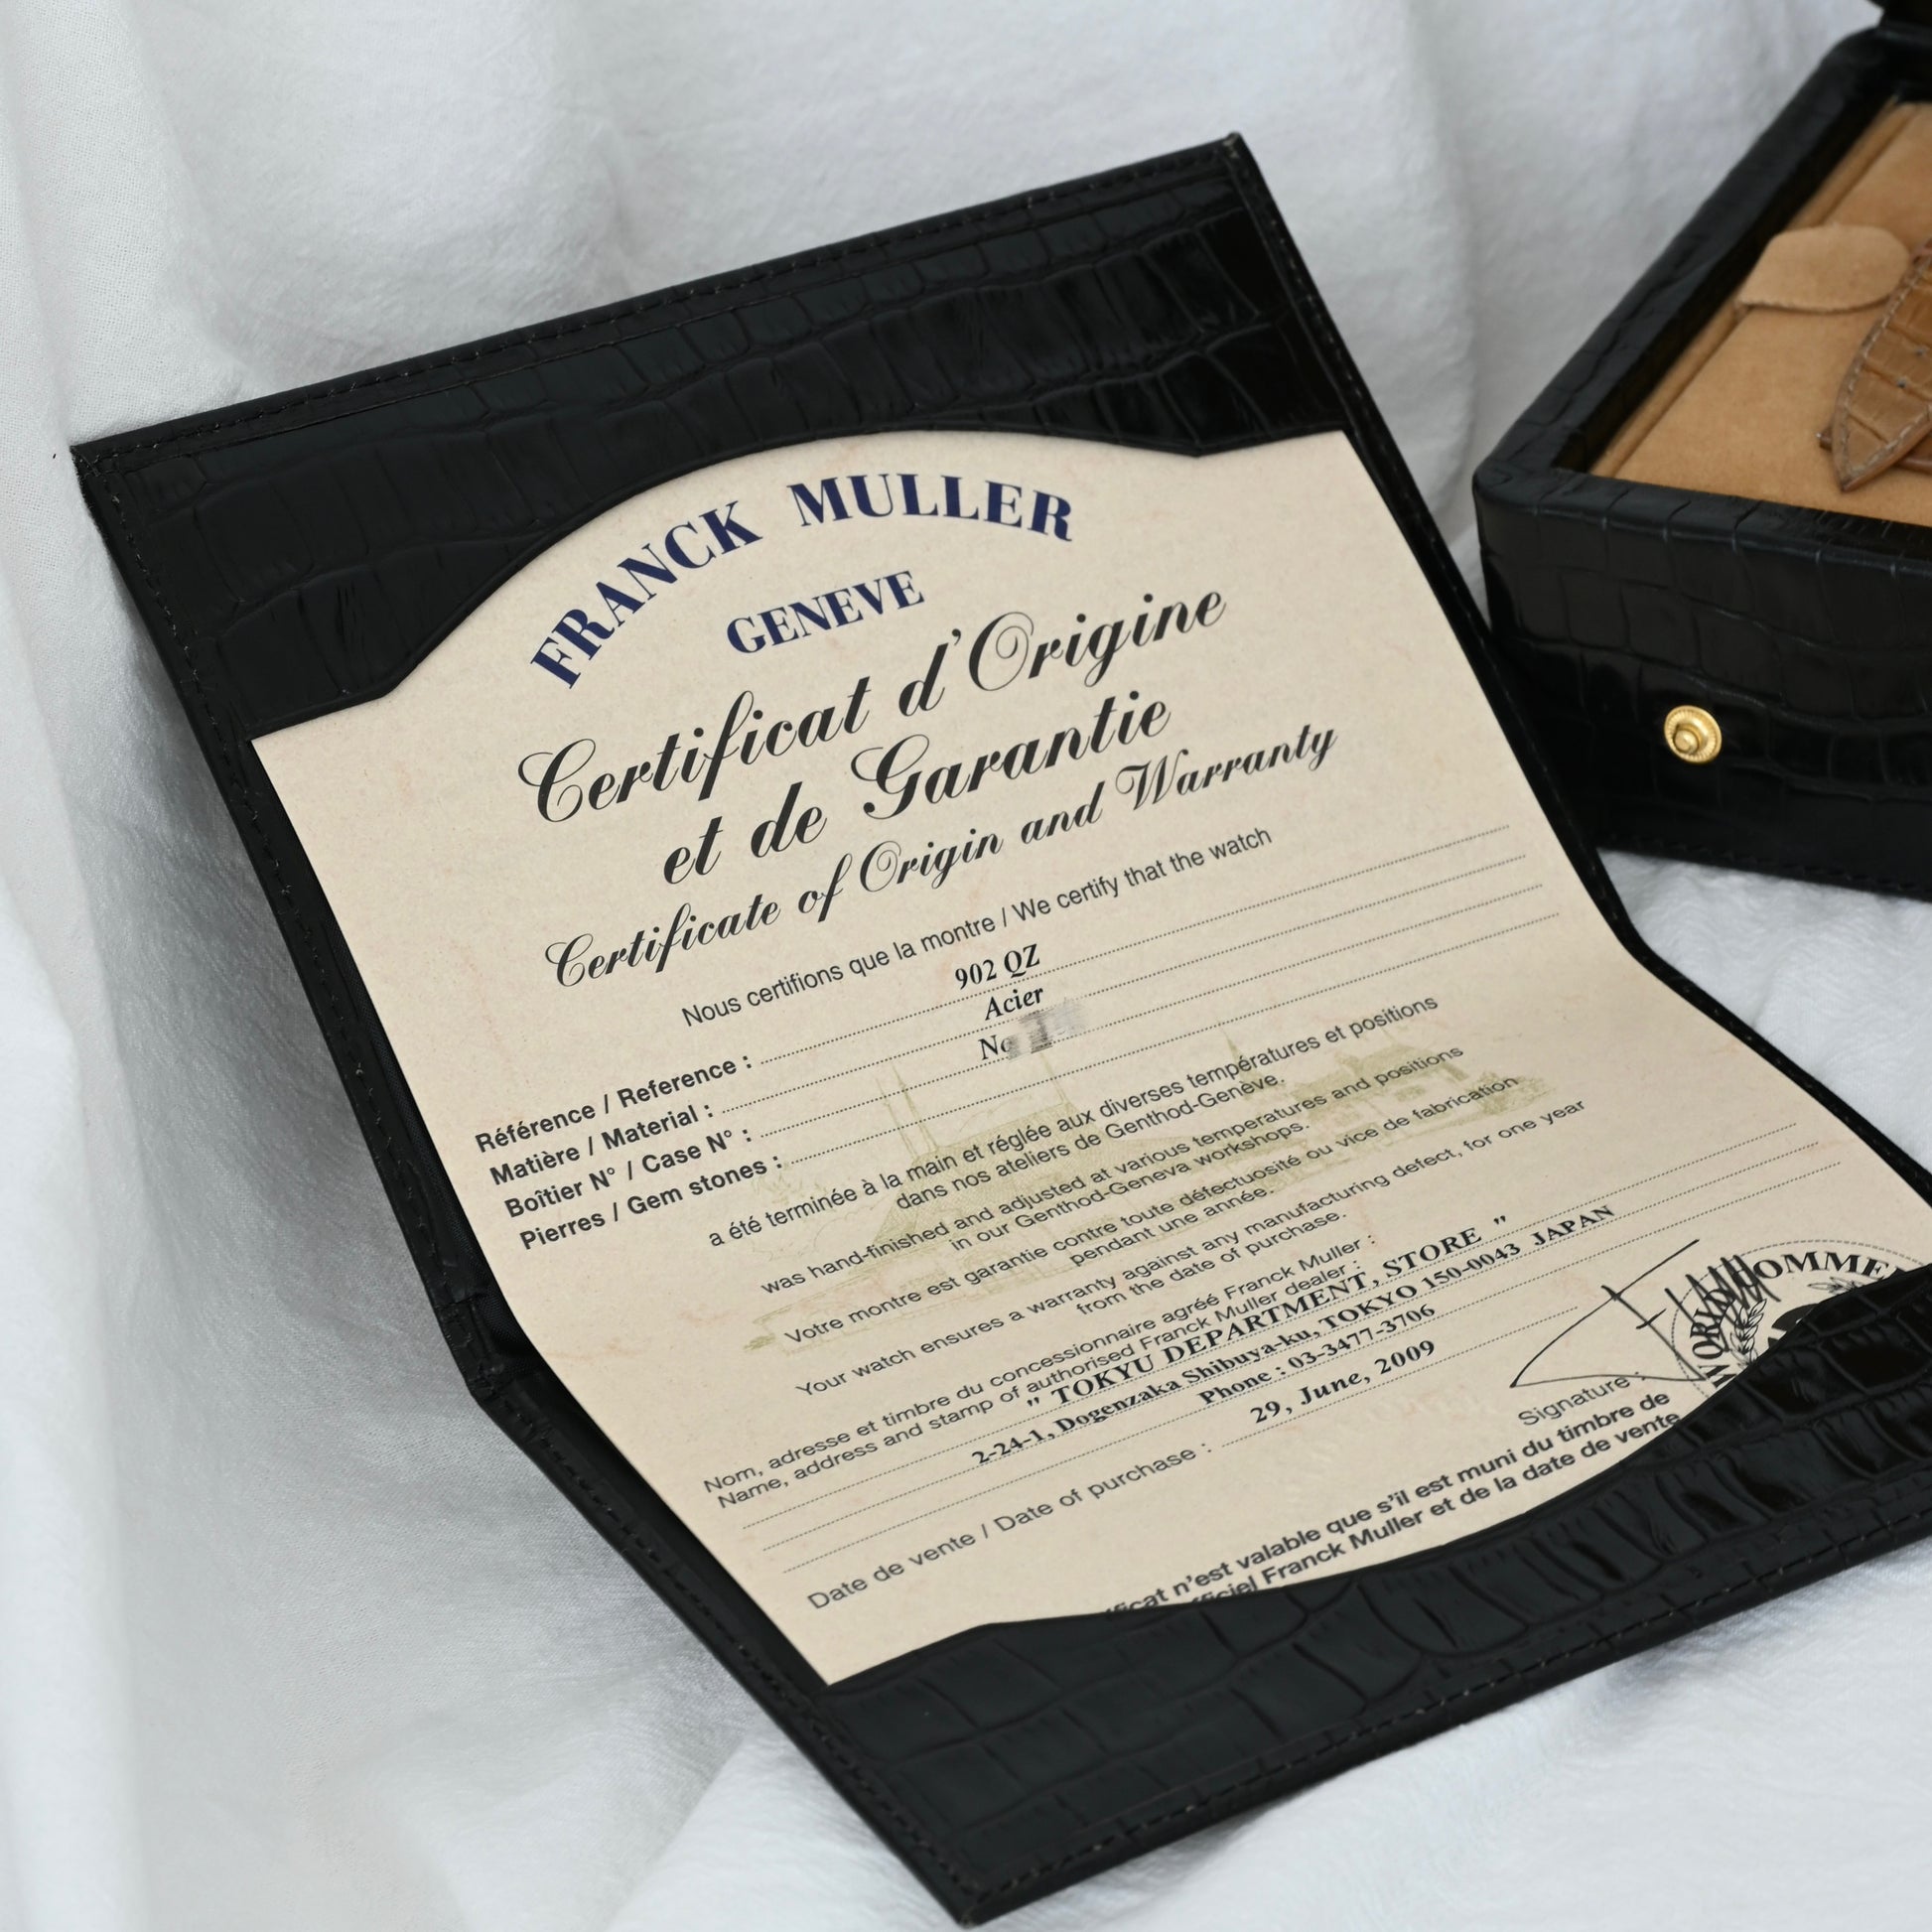 FRANCK MULLER
GENEVE
Certificat d'Origine
et de Garantie
Certificate of Origin and Warranty
Nous certifions que la montre / We certify that the watch
Référence / Reference : 902 QZ
Matière / Material : Acier
Boîtier N° / Case N° :
Pierres / Gem stones :
a été terminée à la main et réglée aux diverses températures et positions
dans nos ateliers de Genthod-Genève.
was hand-finished and adjusted at various temperatures and positions
in our Genthod-Geneva workshops.
Votre montre est garantie contre toute défectuosité ou vice de fabrication
pendant une année.
Your watch ensures a warranty against any manufacturing defect, for one year
from the date of purchase.
Nom, adresse et timbre du concessionnaire agréé Franck Muller :
Name, address and stamp of authorised Franck Muller dealer :
" TOKYU DEPARTMENT, STORE "
2-24-1, Dogenzaka Shibuya-ku, TOKYO 150-0043 JAPAN
Phone : 03-3477-3706
Date de vente / Date of purchase : 29, June, 2009
Signature :
n'est valable que s'il est muni du timbre de
Franck Muller et de la date de vente